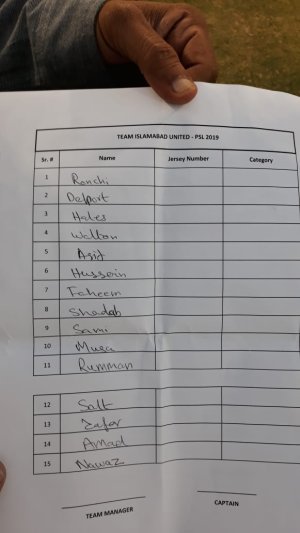 TEAM ISLAMABAD UNITED - PSL 2019
Sr. # Name Jersey Number Category
1 Ronchi
2 Delport
3 Hales
4 Walton
5 Asif
6 Hussein
7 Faheem
8 Shadab
9 Sami
10 Musa
11 Rumman
12 Salt
13 Zafar
14 Amad
15 Nawaz
TEAM MANAGER CAPTAIN